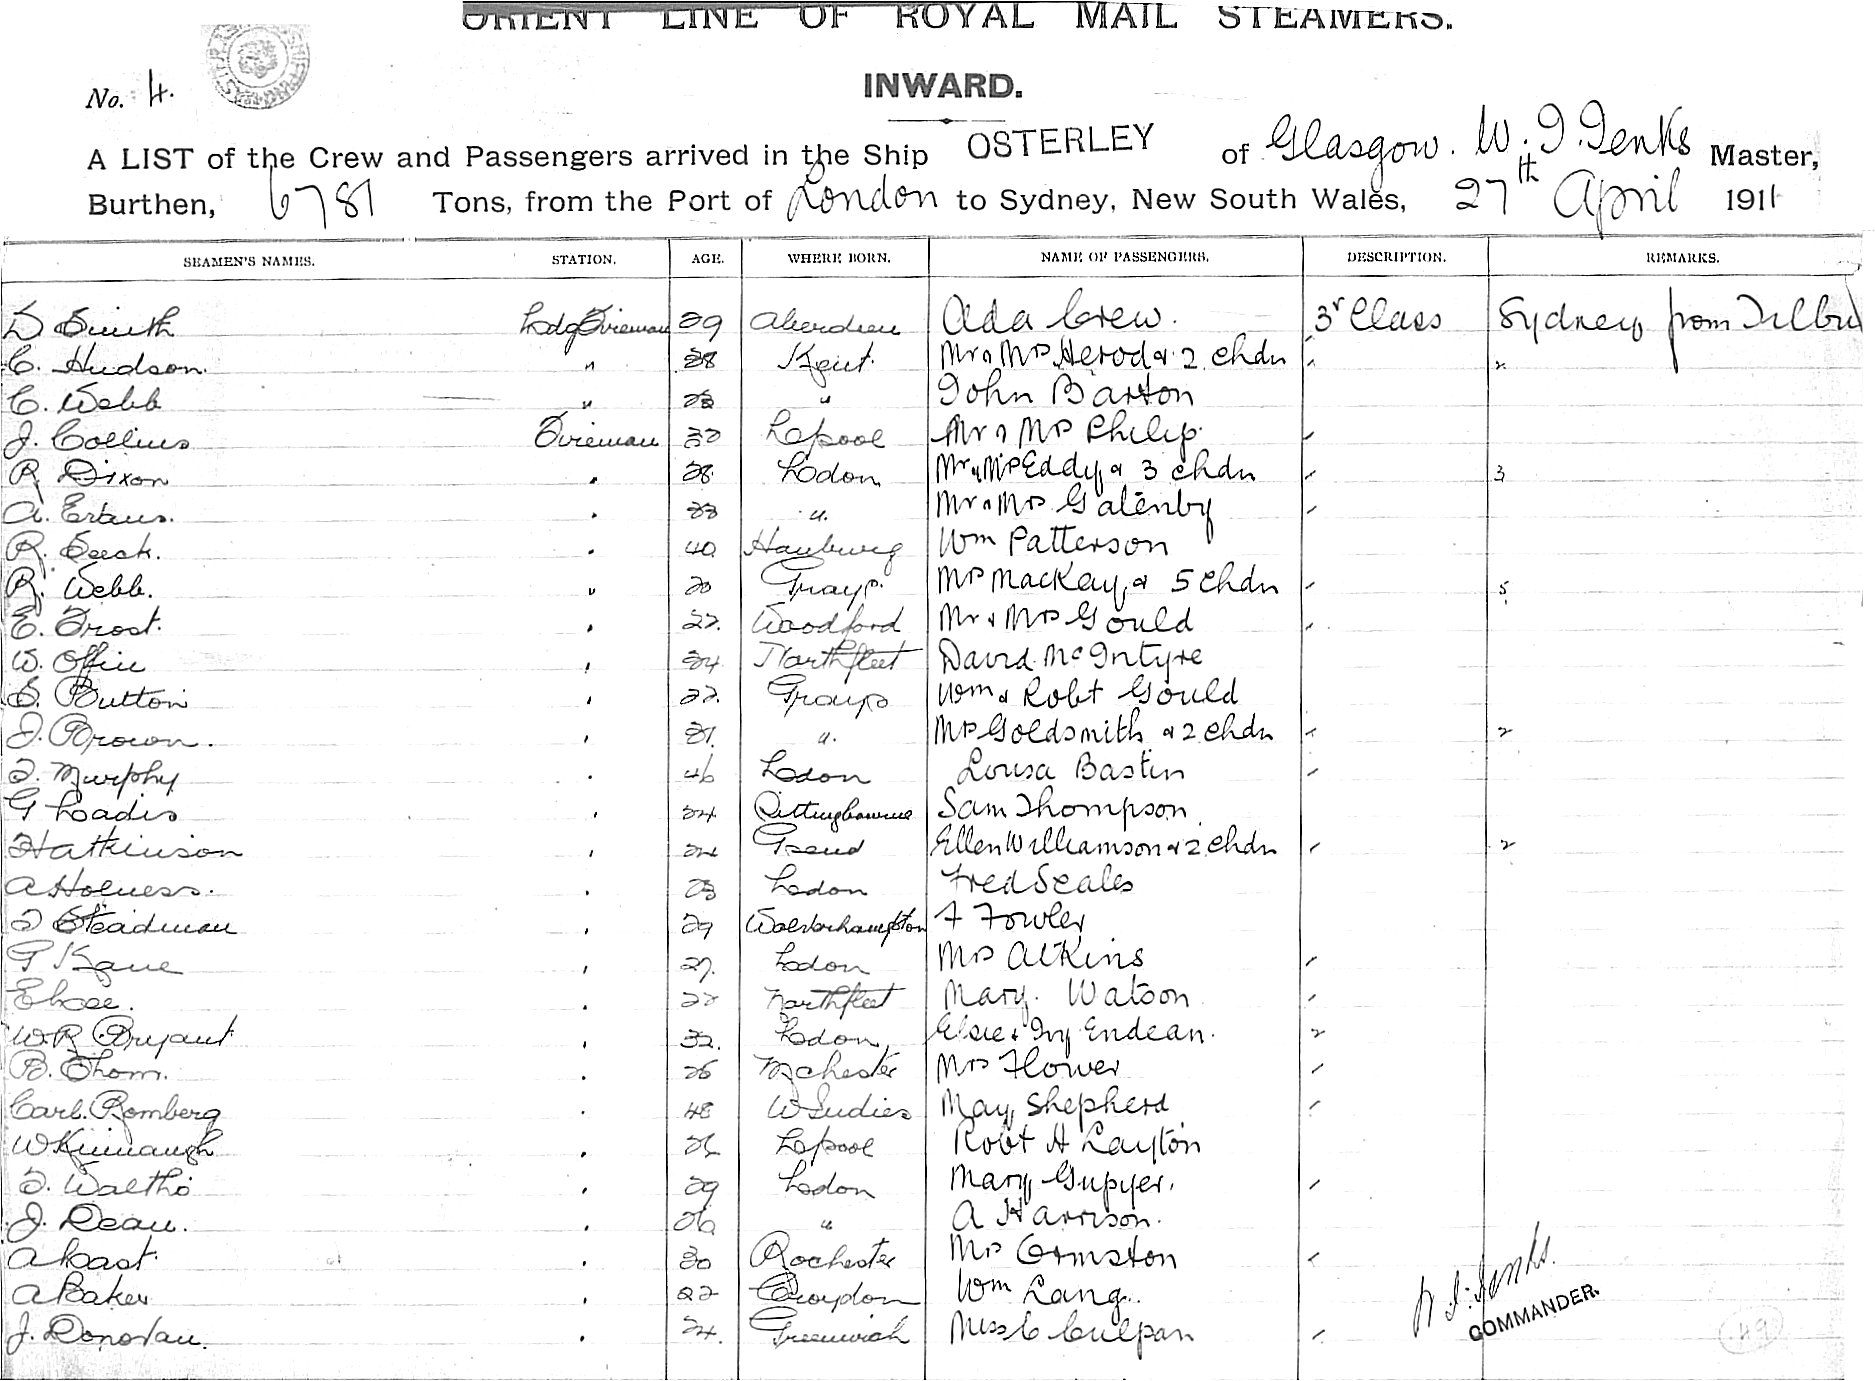 ORIENT LINE OF ROYAL MAIL STEAMERS.
No. 4.
INWARD.
A LIST of the Crew and Passengers arrived in the Ship OSTERLEY of Glasgow. W. J. Jenks Master,
Burthen, 6781 Tons, from the Port of London to Sydney, New South Wales, 27th April 1911
SEAMEN'S NAMES. STATION. AGE. WHERE BORN. NAME OF PASSENGERS. DESCRIPTION. REMARKS.
D Smith Ldg Fireman 29 Aberdeen Ada Crew. 3r Class Sydney from Tilbu
C. Hudson. " 28 Kent. Mr & Mrs Herod & 2 chdn 2
C. Webb " " John Barton
J. Collins Fireman Lpool Mr & Mrs Philip
R. Dixon 28 Lodon Mr & Mrs Eddy & 3 chdn 3
A. ". Mr & Mrs Galenby
R. 40 Wm Patterson
R. Webb. " 20 Grays. Mrs MacKay & 5 chdn 5
E. Frost. 22. Woodford Mr & Mrs Gould
W. Offin 24 Northfleet David McIntyre
S. Button 22. Grays Wm & Robt Gould
J. Brown. 21. ". Mrs Goldsmith & 2 chdn 2
T. Murphy 46 Lodon Louisa Bastin
G 24 Sittingbourne Sam Thompson
Hatkinson 24 Gsend Ellen Williamson & 2 chdn 2
A Holness. 23 Lodon Fred Scales
T Steadman 29 Wolverhampton F Fowler
G Kane 27. Lodon Mrs Atkins
22 Northfleet Mary. Watson
W. R Bryant 32. Lodon Elsie & Ivy Endean. 2
B. Thom. 26 Mchester Mrs Flower
Carl. Romberg 48 W Indies May Shepherd
W Kinnaugh 26 Lpool Robt H Layton
T. Waltho 29 Lodon Mary Gupyer.
J. Dean. 26 " A Harrison.
A 30 Rochester Mrs Ormston
A Baker 22 Croydon Wm Lang.
J. Donovan. 24. Greenwich Miss C Culpan
W. J. Jenks.
COMMANDER.
49